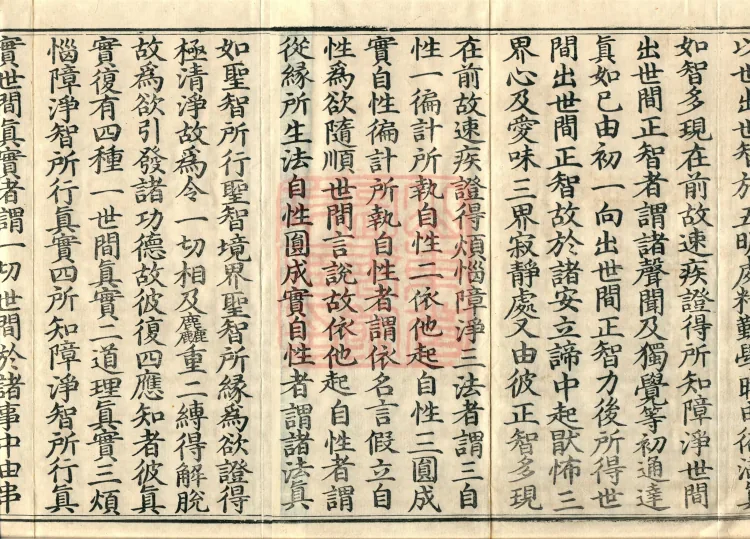 以世出世智於五明處精勤學時由依
如智多現在前故速疾證得所知障淨世間
出世間正智者謂諸聲聞及獨覺等初通達
眞如已由初一向出世間正智力後所得世
間出世間正智故於諸安立諦中起猒怖三
界心及愛味三界寂靜處又由彼正智多現
在前故速疾證得煩惱障淨三法者謂三自
性一徧計所執自性二依他起自性三圓成
實自性徧計所執自性者謂依名言假立自
性爲欲隨順世間言說故依他起自性者謂
從緣所生法自性圓成實自性者謂諸法眞
如聖智所行聖智境界聖智所緣爲欲證得
極清淨故爲令一切相及麤重二縛得解脫
故爲欲引發諸功德故彼復四應知者彼眞
實復有四種一世間眞實二道理眞實三煩
惱障淨智所行眞實四所知障淨智所行眞
實世間眞實者謂一切世間於諸事中由串